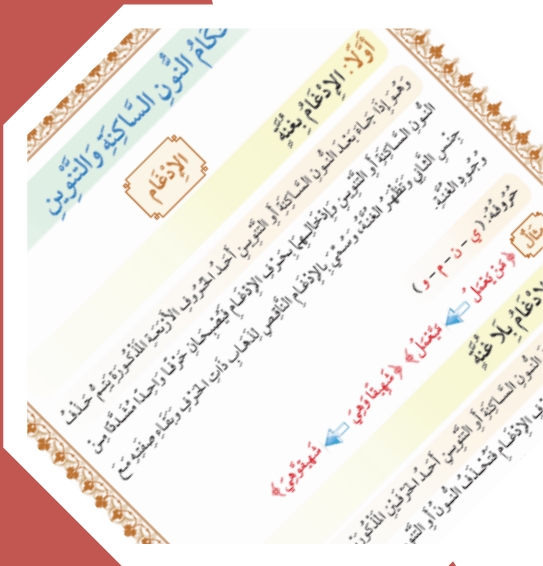 ـكَامُ النُّونِ السَّاكِنَةِ وَالتَّنْوِينِ
الإِدْغَام
أَوَّلًا: الإِدْغَامُ بِغُنَّةٍ
وَهُوَ إِذَا جَاءَ بَعْدَ النُّونِ السَّاكِنَةِ أَوِ التَّنْوِينِ أَحَدُ الْحُرُوفِ الأَرْبَعَةِ الْمَذْكُورَةِ يَتِمُّ حَذْفُ
النُّونِ السَّاكِنَةِ أَوِ التَّنْوِينِ وَإِدْخَالِهَا بِحَرْفِ الإِدْغَامِ فَيُصْبِحَانِ حَرْفًا وَاحِدًا مُشَدَّدًا مِنْ
جِنْسِ الثَّانِي وَتَظْهَرُ الْغُنَّةُ، وَسُمِّيَ بِالإِدْغَامِ النَّاقِصِ لِذَهَابِ ذَاتِ الْحَرْفِ وَبَقَاءِ صِفَتِهِ مَعَ
وُجُودِ الْغُنَّةِ.
حُرُوفُهُ: (ي - ن - م - و)
مِثَال
﴿مَن يَعْمَلْ مَيَّعْمَلْ﴾ ﴿شَهِيقًا وَهِيَ شَهِيقَوَّهِيَ﴾
ـلإِدْغَامُ بِلَا غُنَّةٍ
النُّونِ السَّاكِنَةِ أَوِ التَّنْوِينِ أَحَدُ الْحَرْفَيْنِ الْمَذْكُورَ
ـفِ الإِدْغَامِ فَتُحْذَفُ النُّونُ أَوِ التَّنْو